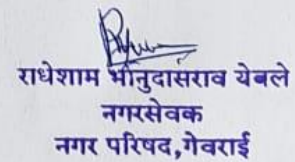 राधेशाम भानुदासराव येबले
नगरसेवक
नगर परिषद,गेवराई